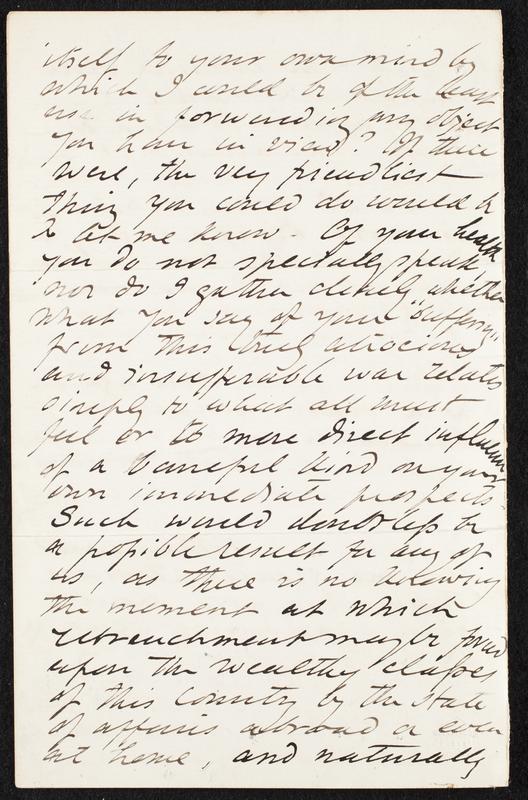 itself to your own mind by
which I could be of the least
use in forwarding any object
you have in view? If there
were, the very friendliest
thing you could do would be
to let me know. Of your health
you do not specially speak,
nor do I gather clearly whether
what you say of your "suffering"
from this truly atrocious
and insufferable war relates
simply to what all must
feel or to more direct influence
of a baneful kind on your
own immediate prospects.
Such would doubtless be
a possible result for any of
us, as there is no knowing
the moment at which
retrenchment may be forced
upon the wealthy classes
of this country by the state
of affairs abroad or even
at home, and naturally